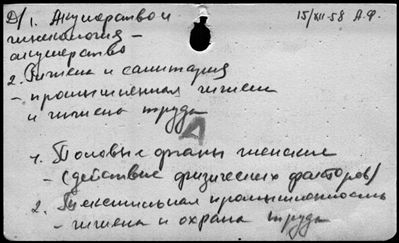 Д/1. Акушерство и
15/XII-58 А.Ф.
гинекология -
акушерство
2. Гигиена и санитария
- промышленная гигиена
и гигиена труда
Д
1. Половые органы женские
- (действие физических факторов)
2. Текстильная промышленность
- гигиена и охрана труда